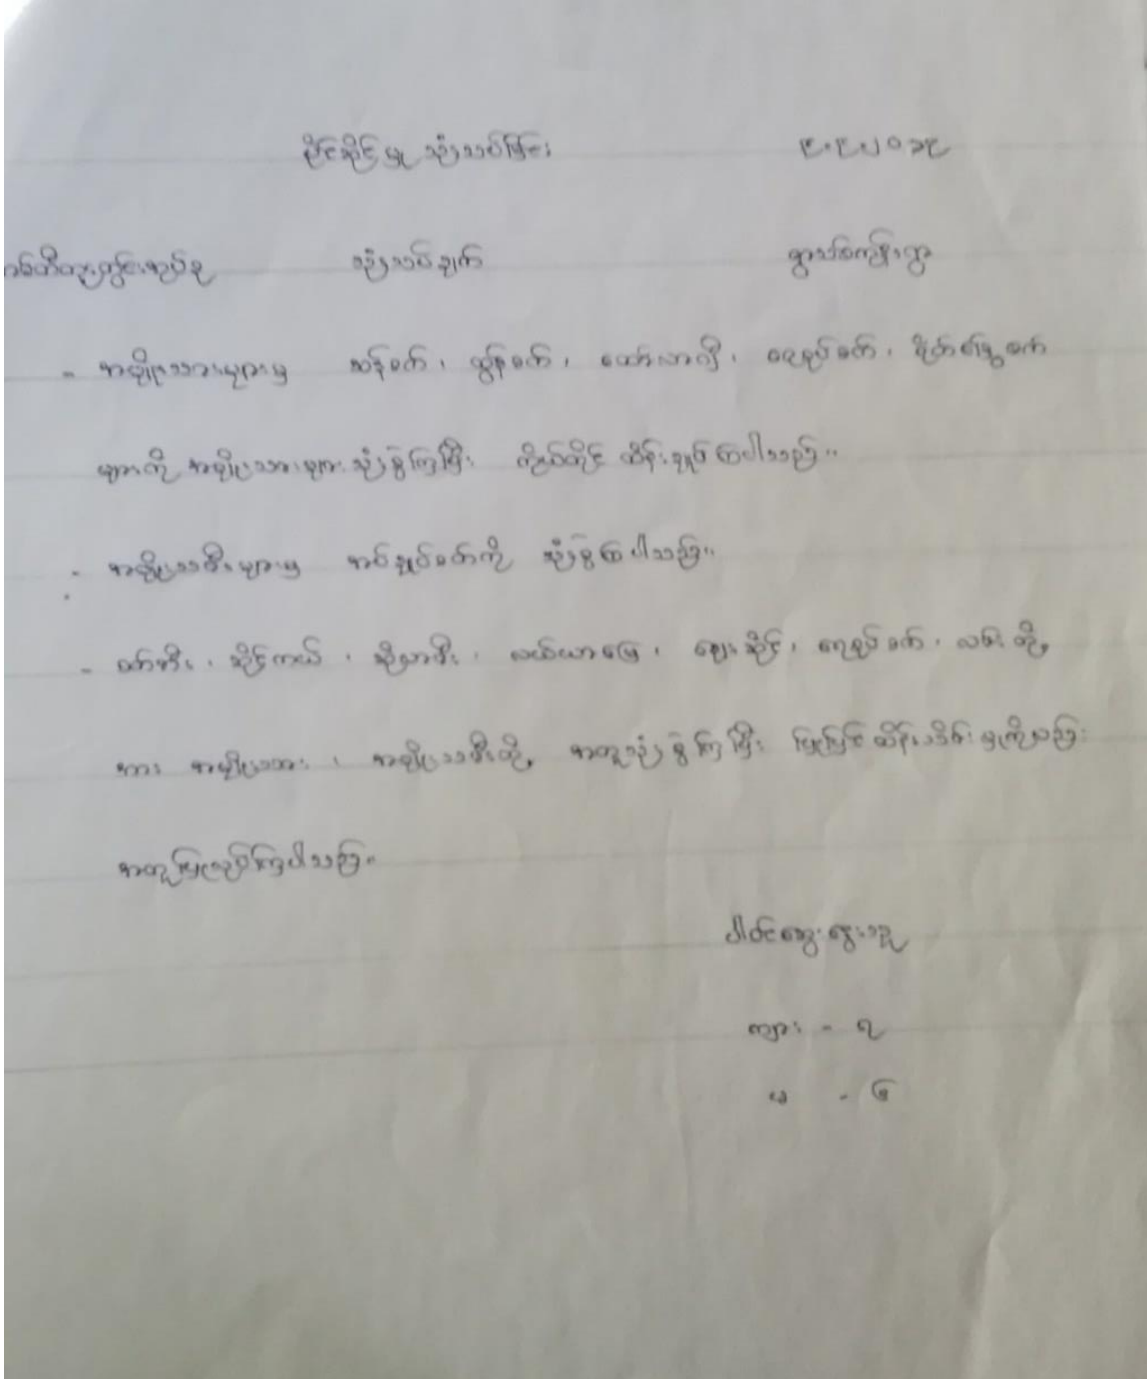 ပိုင်ဆိုင်မှု သုံးသပ်ခြင်း ၉.၉.၂၀၁၉
သုံးသပ်ချက် ရွာသစ်ကျွန်းရွာ
- အမျိုးသားများမှ ဆန်စက်၊ ထွန်စက်၊ ထော်လာဂျီ၊ ရေစုပ်စက်၊
များကို အမျိုးသားများ သုံးစွဲကြပြီး ကိုယ်တိုင် ထိန်းချုပ်ကြပါသည်။
- အမျိုးသမီးများမှ အပ်ချုပ်စက်ကို သုံးစွဲကြပါသည်။
- စက်ဘီး၊ ဆိုင်ကယ်၊ ဆိုလာမီး၊ လယ်ယာမြေ၊ ဈေးဆိုင်၊ ရေစုပ်စက်၊ လမ်းတို့
အား အမျိုးသား၊ အမျိုးသမီးတို့ အတူသုံးစွဲကြပြီး ပြုပြင်ထိန်းသိမ်းမှုကိုလည်း
အတူပြုလုပ်ကြပါသည်။
ပါဝင်ဆွေးနွေးသူ
ကျား - ၇
မ - ၆